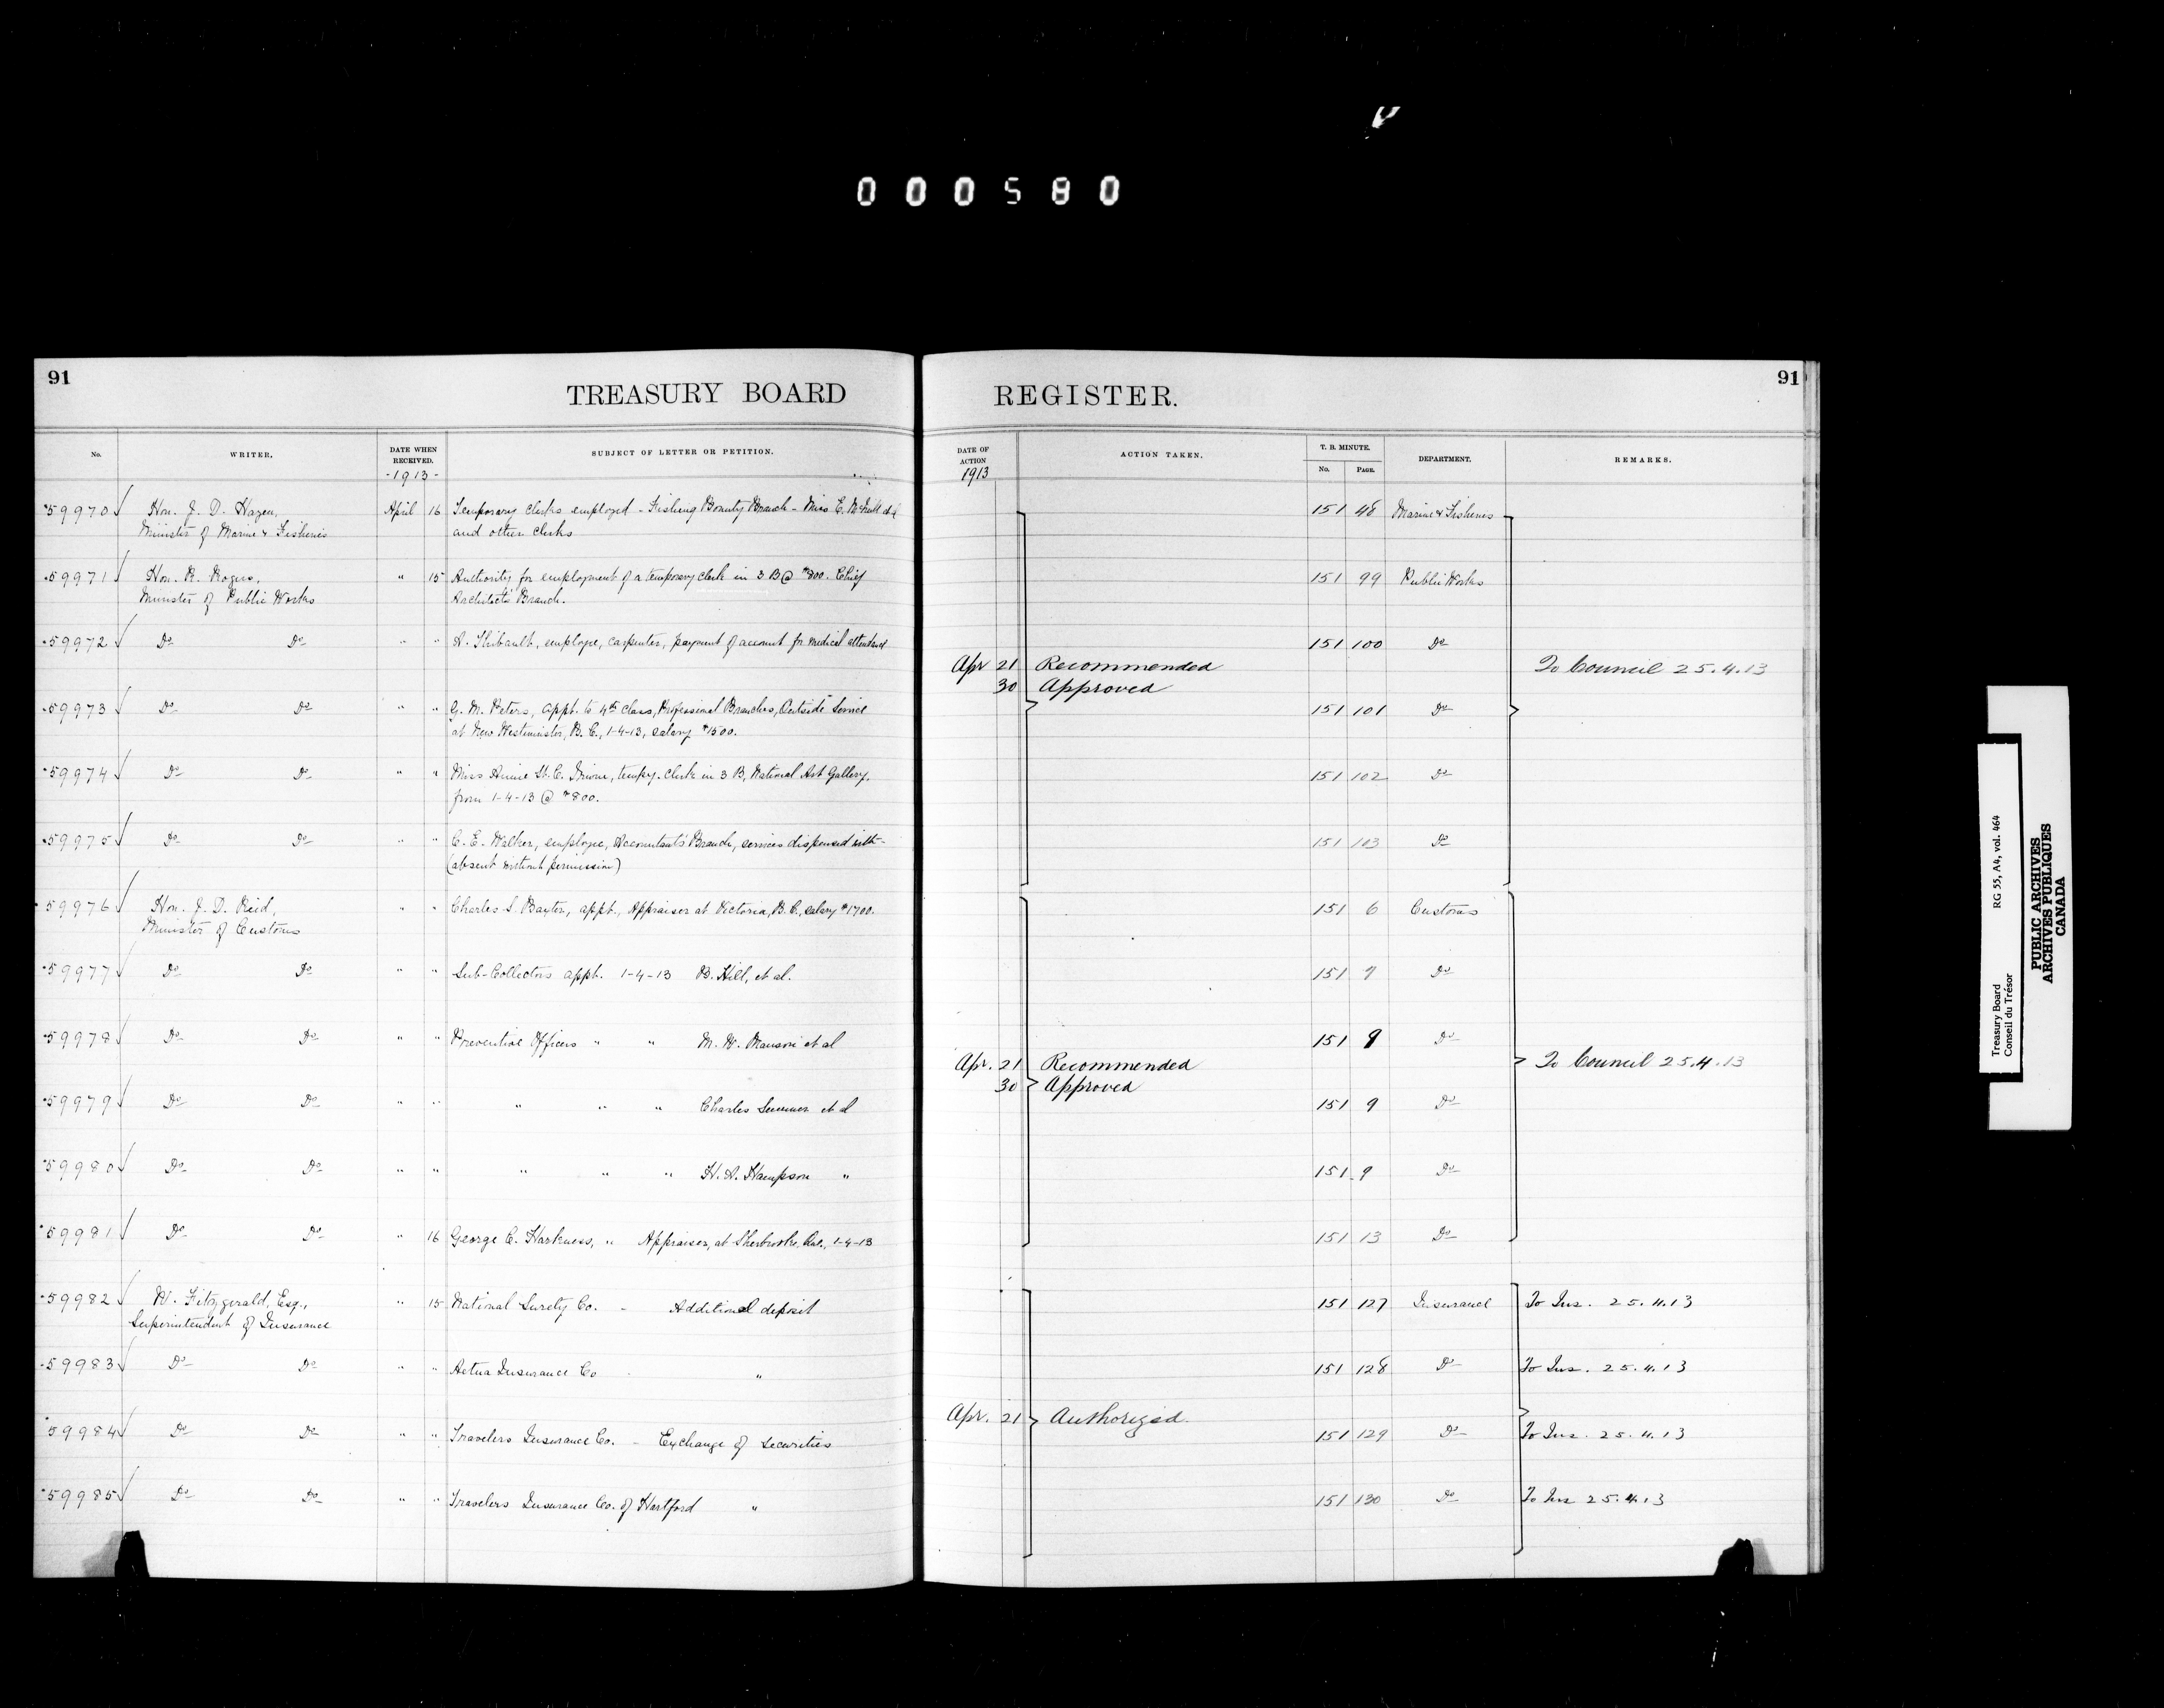 000580
91
TREASURY BOARD REGISTER.
91
No. WRITER. DATE WHEN RECEIVED. SUBJECT OF LETTER OR PETITION. DATE OF ACTION ACTION TAKEN. T. B. MINUTE. No. PAGE. DEPARTMENT. REMARKS.
-1913- 1913
59970 Hon. J. D. Hazen, April 16 Temporary clerks employed - Fishing Bounty Branch - Miss E. 151 48 Marine & Fisheries
Minister of Marine & Fisheries and other clerks
59971 Hon. R. Rogers, " 15 Authority for employment of a temporary clerk in 3 B @ $800. Chief 151 99 Public Works
Minister of Public Works Architect's Branch.
59972 Do Do " " A. Thibault, employee, carpenter, payment of account for medical attendance 151 100 Do
Apr 21 Recommended To Council 25.4.13
30 Approved
59973 Do Do " " G. M. Peters, appt. to 4th Class, Professional Branches, Outside Service 151 101 Do
at New Westminster, B. C., 1-4-13, salary $1500.
59974 Do Do " " Miss Annie St. C. tempy. clerk in 3 B, National Art Gallery, 151 102 Do
from 1-4-13 @ $800.
59975 Do Do " " C. E. Walker, employee, Accountant's Branch, services dispensed with - 151 103 Do
(absent without permission)
59976 Hon. J. D. Reid, " " Charles S. Baxter, appt., Appraiser at Victoria, B. C., salary $1700. 151 6 Customs
Minister of Customs
59977 Do Do " " Sub-Collectors appt. 1-4-13 B. Hill, et al. 151 7 Do
59978 Do Do " " Preventive Officers " " M. W. et al 151 9 Do
Apr. 21 Recommended To Council 25.4.13
30 Approved
59979 Do Do " " " " " Charles et al 151 9 Do
59980 Do Do " " " " " H. A. Hampson " 151 9 Do
59981 Do Do " 16 George C. Harkness, " Appraiser, at Sherbrooke, Que., 1-4-13 151 13 Do
59982 W. Fitzgerald, Esq., " 15 National Surety Co. - Additional deposit 151 127 Insurance To Ins. 25.4.13
Superintendent of Insurance
59983 Do Do " " Aetna Insurance Co " 151 128 Do To Ins. 25.4.13
Apr. 21 Authorized
59984 Do Do " " Travelers Insurance Co. - Exchange of securities 151 129 Do To Ins. 25.4.13
59985 Do Do " " Travelers Insurance Co. of Hartford " 151 130 Do To Ins 25.4.13
Treasury Board RG 55, A4, vol. 464
Conseil du Trésor
PUBLIC ARCHIVES
ARCHIVES PUBLIQUES
CANADA